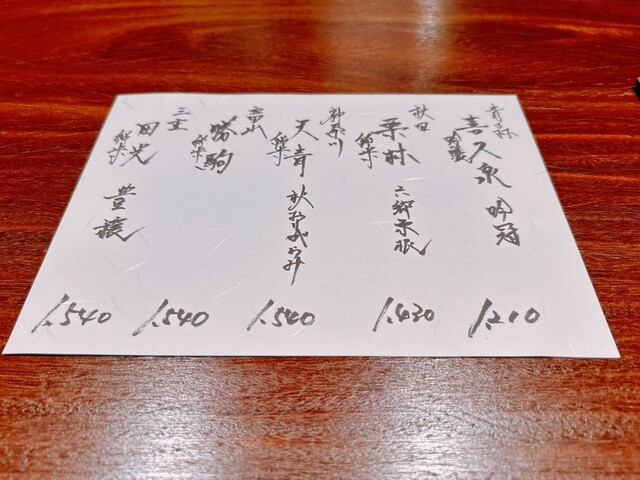 青森
喜久泉 吟冠
1,210
秋田
純米
栗林 六郷東根
1,430
神奈川
純米
天青 秋おりがらみ
1,540
富山
純米
勝駒
1,540
三重
純米
田光 豊穣
1,540